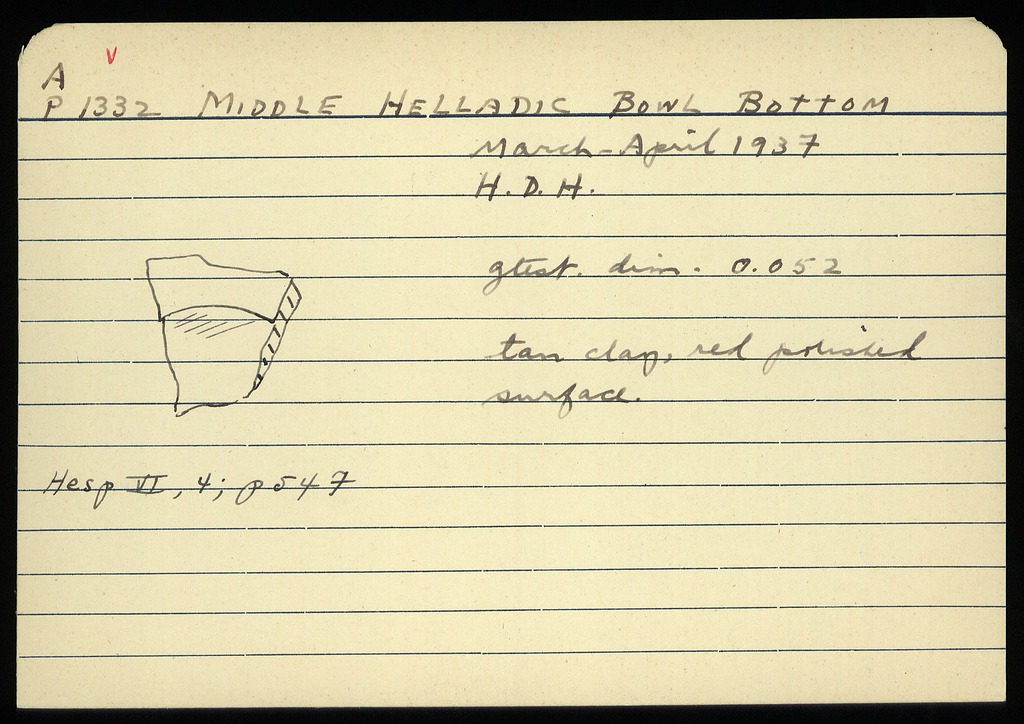 V
A
P 1332 MIDDLE HELLADIC BOWL BOTTOM
March-April 1937
H. D. H.
gtest. dim. 0.052
tan clay, red polished
surface.
Hesp VI, 4; p 547